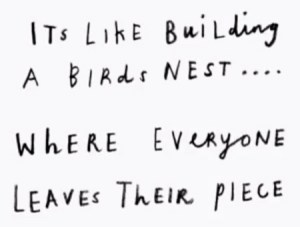 ITs LIKE BuiLding
A BIRds NEST....
WhERE EVERyONE
LEAVEs ThEIR pIECE